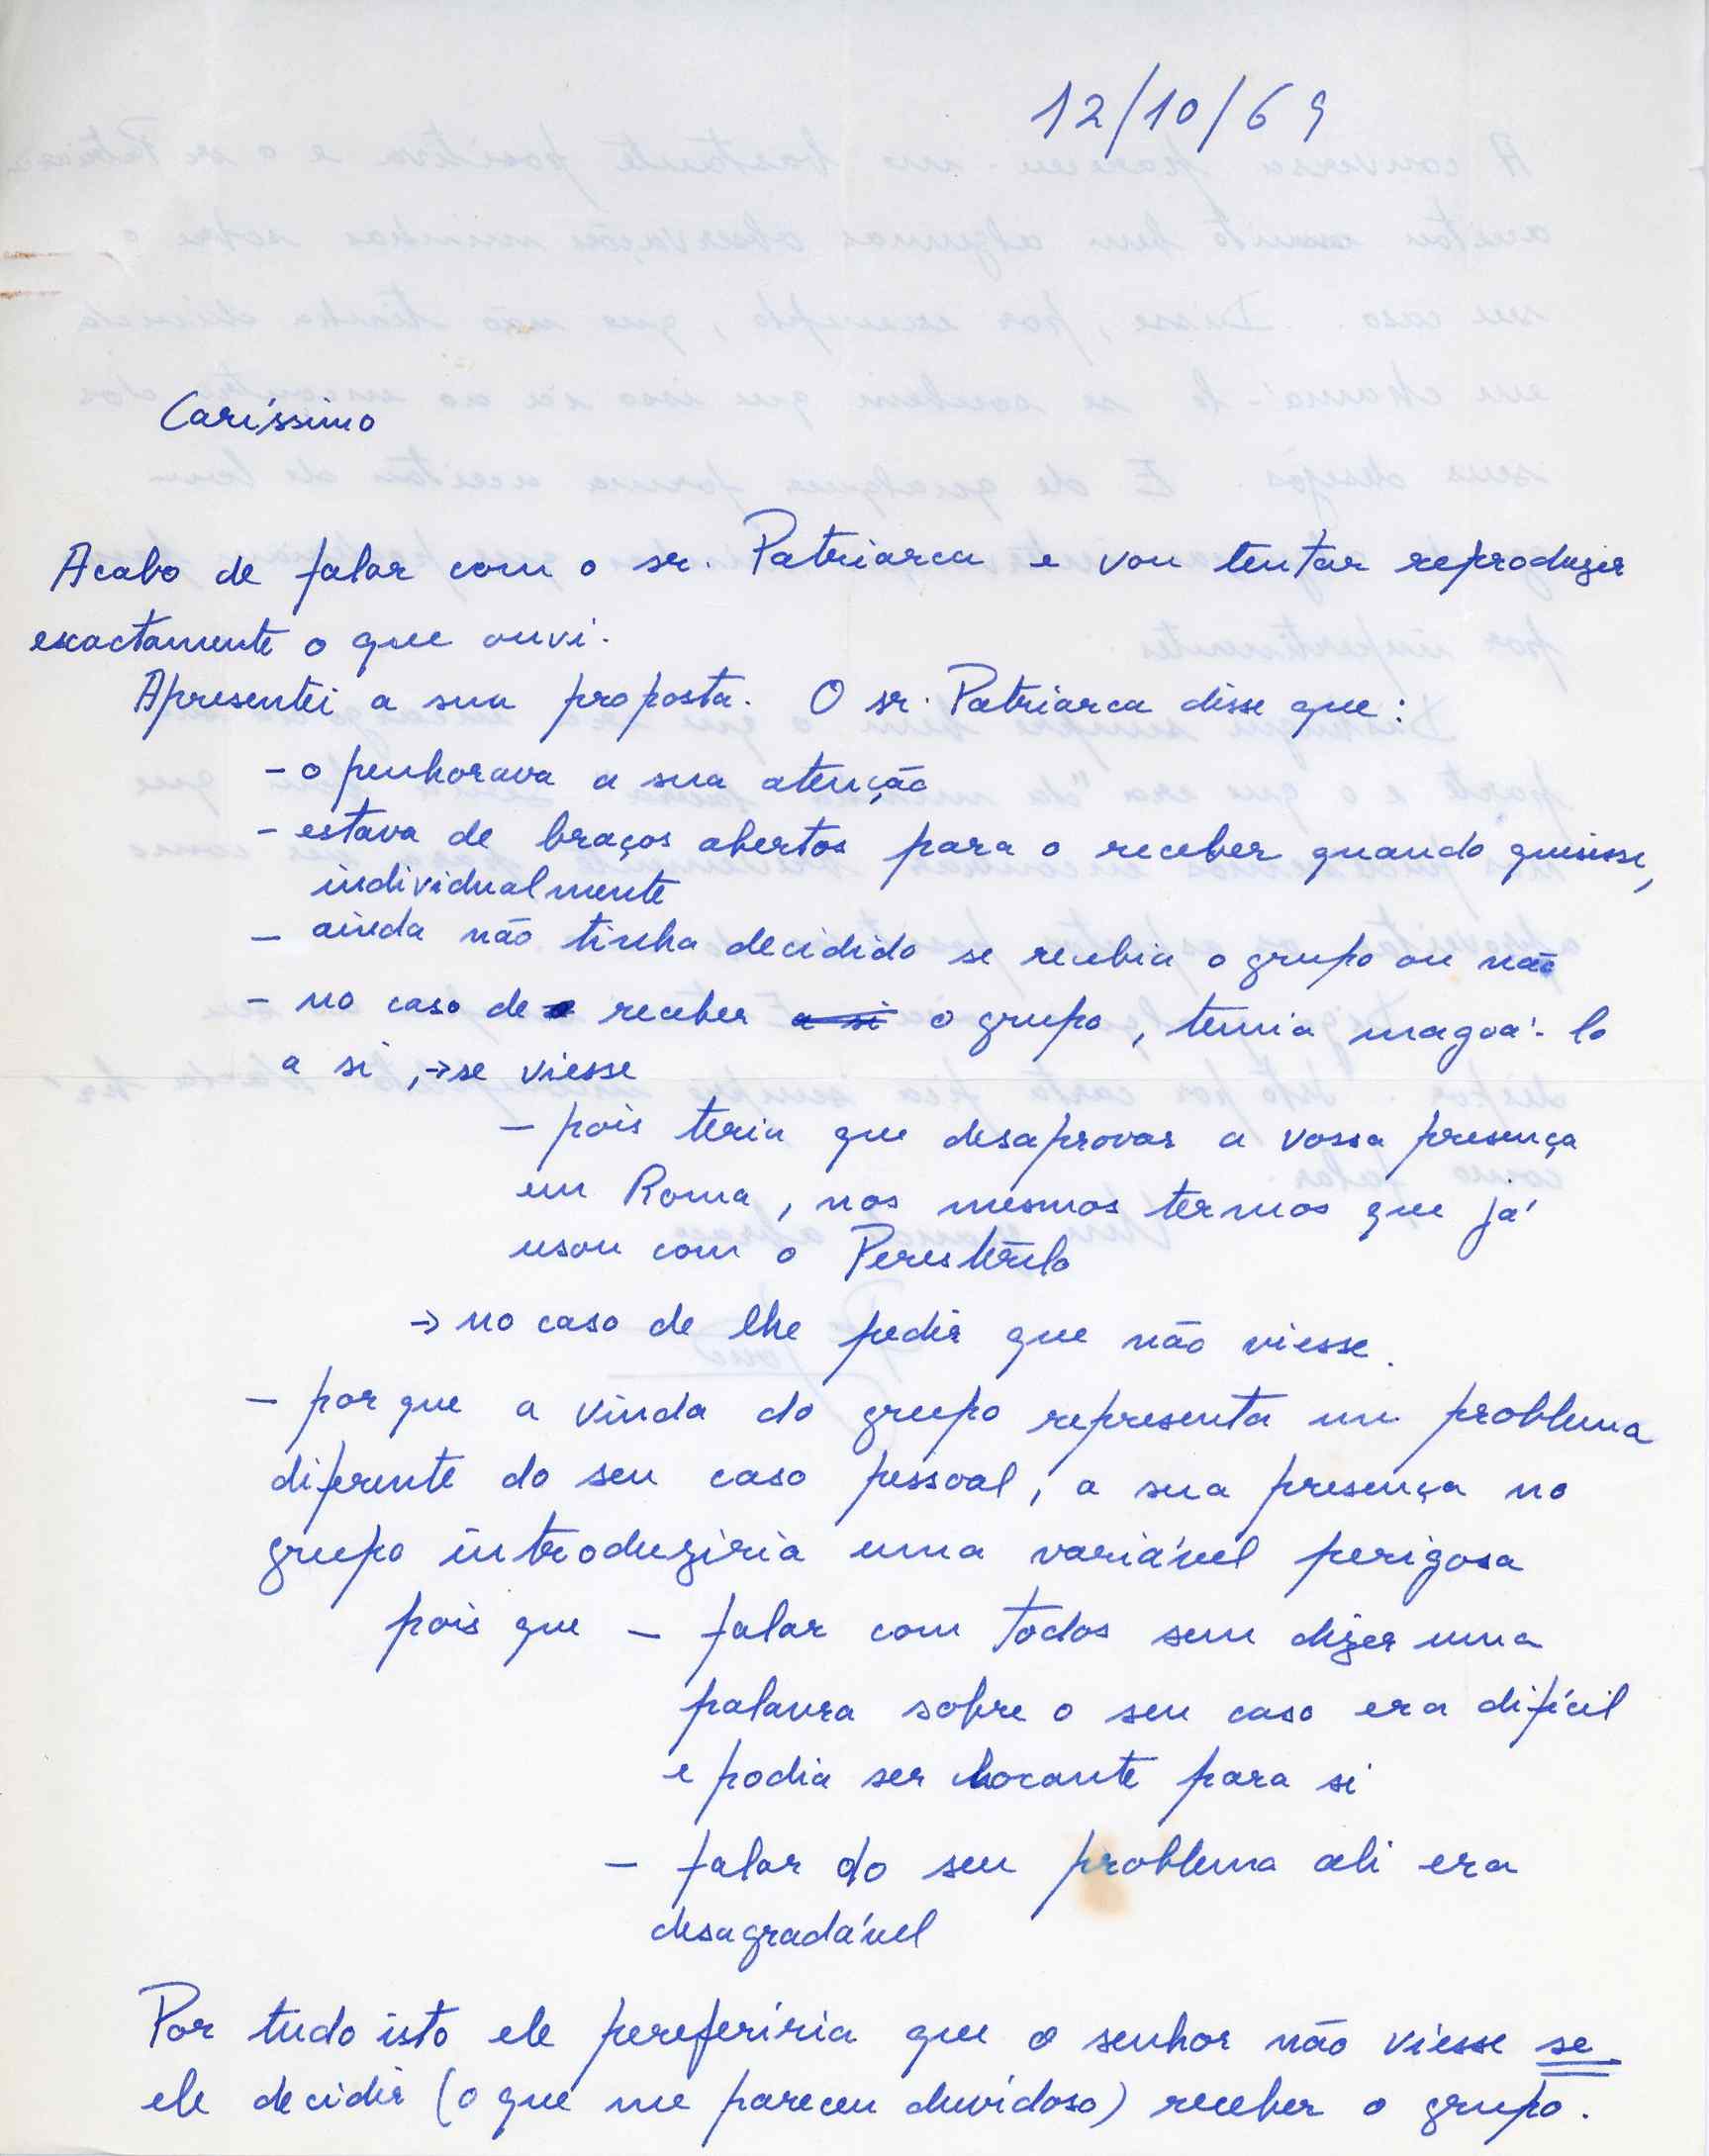 12/10/69
Caríssimo
Acabo de falar com o sr. Patriarca e vou tentar reproduzir
exactamente o que ouvi.
Apresentei a sua proposta. O sr. Patriarca disse que:
- o penhorava a sua atenção
- estava de braços abertos para o receber quando quisesse,
individualmente
- ainda não tinha decidido se recebia o grupo ou não
- no caso de receber a si o grupo, temia magoá-lo
a si, → se viesse
- pois teria que desaprovar a vossa presença
em Roma, nos mesmos termos que já
usou com o Perestrelo
→ no caso de lhe pedir que não viesse.
- porque a vinda do grupo representa um problema
diferente do seu caso pessoal, a sua presença no
grupo introduziria uma variável perigosa
pois que - falar com todos sem dizer uma
palavra sobre o seu caso era difícil
e podia ser chocante para si
- falar do seu problema ali era
desagradável
Por tudo isto ele pereferiria que o senhor não viesse se
ele decidir (o que me pareceu duvidoso) receber o grupo.